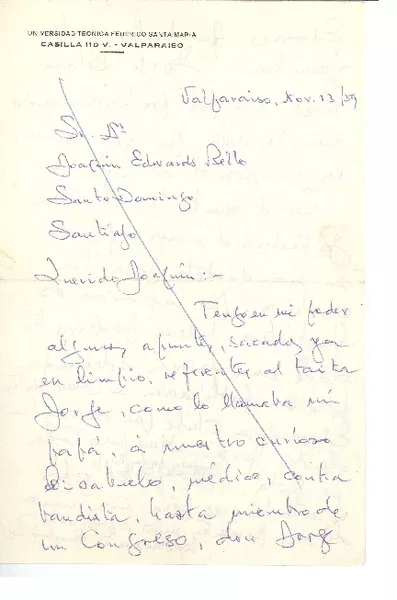 UNIVERSIDAD TECNICA FEDERICO SANTA MARIA
CASILLA 110 V. - VALPARAISO
Valparaiso, Nov. 13/59
Sr. Dn
Joaquín Edwards Bello
Santo Domingo
Santiago
Querido Joaquín:-
Tengo en mi poder
algunos apuntes, sacados ya
en limpio, referentes al taita
Jorge, como lo llamaba mi
papá, á nuestro curioso
bisabuelo, médico, contra
bandista, hasta miembro de
un Congreso, don Jorge